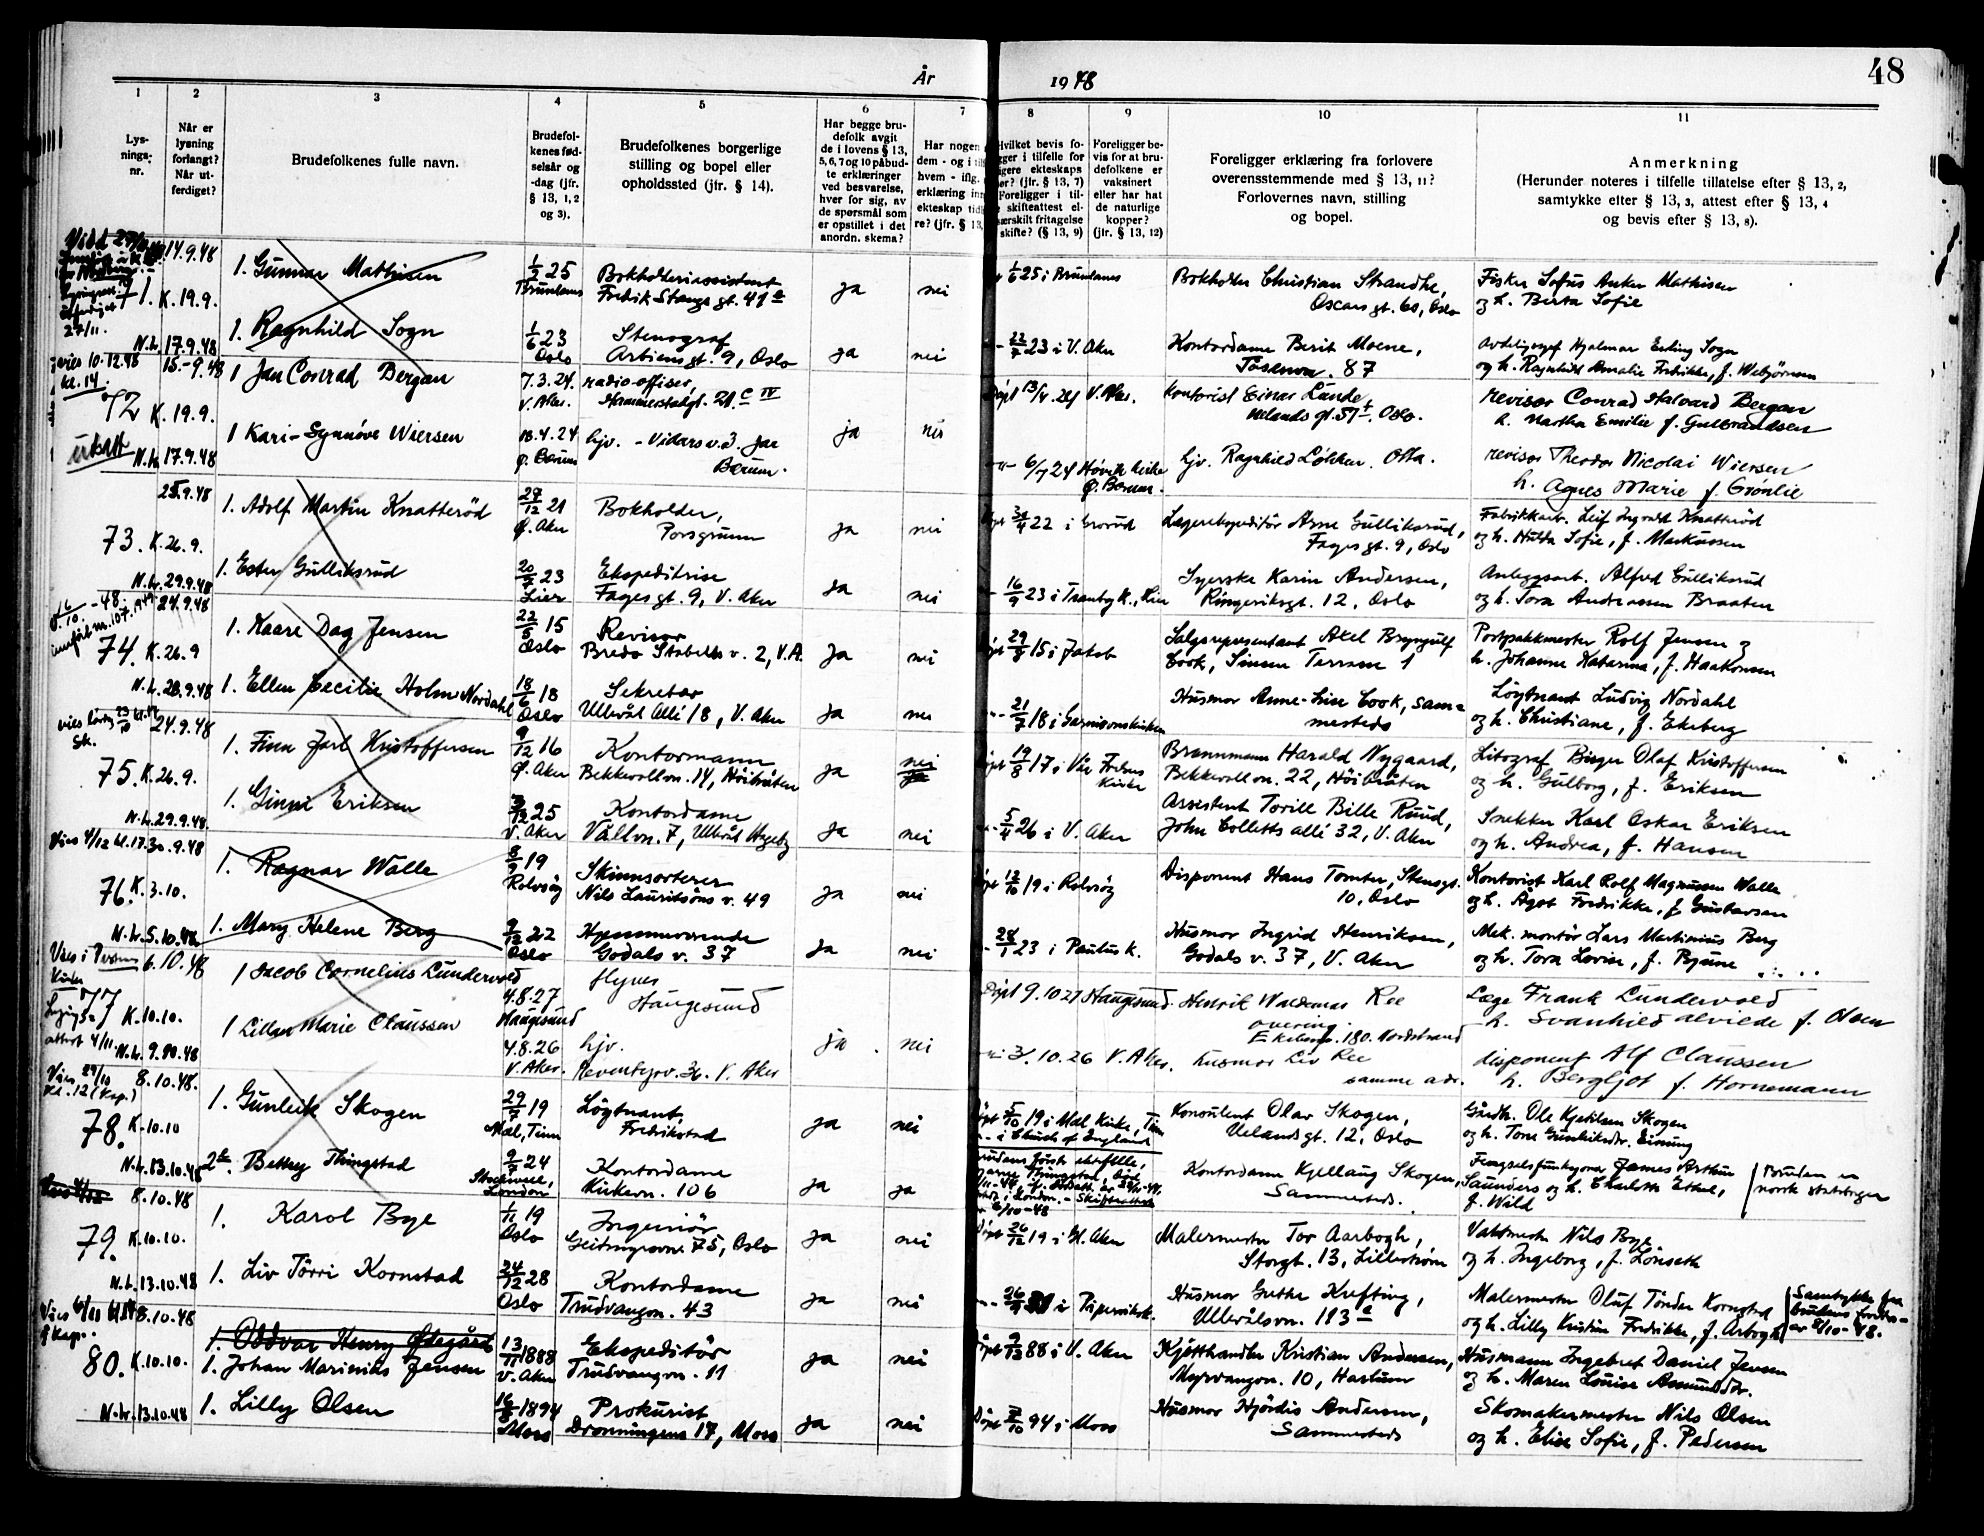 48
År 1948
1 2 3 4 5 6 7 8 9 10 11
Lys-
nings-
nr.
Når er
lysning
forlangt?
Når ut-
ferdiget?
Brudefolkenes fulle navn.
Brudefol-
kenes fød-
selsår og
-dag (jfr.
§ 13, 1, 2
og 3).
Brudefolkenes borgerlige
stilling og bopel eller
opholdssted (jfr. § 14).
Har begge bru-
defolk avgit
de i lovens § 13,
5, 6, 7 og 10 påbud-
te erklæringer
ved besvarelse,
hver for sig, av
de spørsmål som
er opstillet i det
anordn. skema?
Har nogen
dem - og i
hvem - iflg.
erklæring
ekteskap
re? (jfr. § 13,
Hvilket bevis fo-
ger i tilfelle for
gere ekteskaps
ør? (jfr. § 13, 7)
Foreligger i til-
skifteattest el-
særskilt fritagelse
skifte? (§ 13, 9)
Foreligger be-
vis for at bru-
defolkene er
vaksinert
eller har hat
de naturlige
kopper?
(jfr. § 13, 12)
Foreligger erklæring fra forlovere
overensstemmende med § 13, 11?
Forlovernes navn, stilling
og bopel.
Anmerkning
(Herunder noteres i tilfelle tillatelse efter § 13, 2,
samtykke efter § 13, 3, attest efter § 13, 4
og bevis efter § 13, 8).
27/11.
71. K. 19.9.
14.9.48
1. Gunnar Mathisen
1/2 25
Brunlanes
Bokholderiassistent
Fredrik Stangs gt. 41
ja nei
1/6 25 i Brunlanes
Bokholder Christian Strandhe,
Oscars gt. 60, Oslo
Fisker Sofus Anker Mathisen
og h. Berta Sofie
N.L. 17.9.48
1. Ragnhild Sogn
1/6 23
Oslo
Stenograf
Arbiens gt. 9, Oslo
ja nei
22/7 23 i V. Aker
Kontordame Berit Moene,
Tåsenvn. 87
Hjalmar Erling Sogn
og h. Ragnhild Amalie Fredrikke, f. Webjørnsen
vies 10-12.48
kl. 14.
72 K. 19.9.
15.-9.48
1 Jan Conrad Bergan
7.3.24.
V. Aker.
radio-offiser,
Hammerstadgt. 21.c IV
ja nei
Døpt 13/4.24 V. Aker.
Kontorist Einar Lunde
Uelands gt. 57 Oslo.
revisor Conrad Halvard Bergan
h. Martha Emilie f. Gulbrandsen
utsatt
N.L. 17.9.48
1 Kari-Synnöve Wiersen
18.4.24
Ø. Bærum
hjv. - Vidars v. 3. Jar
Bærum.
6/7 24 Høvik kirke
Ø. Bærum.
hjv. Ragnhild Løkken. Otta.
revisor Theodor Nicolai Wiersen
h. Agnes Marie f. Grønlie
73. K. 26.9.
25.9.48
1. Adolf Martin Knatterød
27/12 21
Ø. Aker
Bokholder,
Porsgrunn
ja nei
30/4 22 i Grorud
Lagerekspeditör Arne Gulliksrud,
Fages gt. 9, Oslo
Fabrikkarb. Leif Ingvald Knatterød
og h. Hulda Sofie, f. Markussen
N.L. 29.9.48
1. Ester Gulliksrud
20/7 23
Lier
Ekspeditrise
Fages gt. 9, V. Aker
ja nei
16/9 23 i Tranby K., Lier
Syerske Karin Andersen,
Ringeriksgt. 12, Oslo
Anleggsarb. Alfred Gulliksrud
og h. Tora Andreassen Braaten
74. K. 26.9
24.9.48
1. Kaare Dag Jensen
22/5 15
Oslo
Revisor
Bredo Stabells v. 2, V.A.
ja nei
Døpt 29/8 15 i Jakob
Salgsrepresentant Axel Bryngulf
Cook, Sinsen Terrasse 1
Postpakkmester Rolf Jensen og
h. Johanne Katarina, f. Haakonsen
N.L. 28.9.48
1. Ellen Cecilie Holm Nordahl
18/6 18
Oslo
Sekretær
Ullevål Allé 18, V. Aker
ja nei
21/7 18 i Garnisonskirken
Husmor Anne-Lise Cook, sam=
mesteds
Løytnant Ludvig Nordahl
og h. Christiane, f. Ekeberg
75. K. 26.9.
24.9.48
1. Finn Jarl Kristoffersen
9/12 16
Ø. Aker
Kontormann
Bekkevollvn. 14, Höibråten
ja nei
Døpt 19/8 17 i Vår Frelsers
Kirke
Brannmann Harald Nygaard,
Bekkevollvn. 22, Höibråten
Litograf Birger Olaf Kristoffersen
og h. Gulborg, f. Eriksen
N.L. 29.9.48.
1. Ginni Eriksen
25
V. Aker
Kontordame
Vollvn. 7, Ullevål Hageby
ja nei
5/4 26 i V. Aker
Assistent Torill Bille Ruud,
John Colletts allé 32, V. Aker
Snekker Karl Oskar Eriksen
og h. Andrea, f. Hansen
Vies 4/12 kl. 17.
76. K. 3.10.
30.9.48
1. Ragnar Walle
8/9 19
Rolvsøy
Skinnsorterer
Nils Lauritsöns v. 49
ja nei
Døpt 12/10 19 i Rolvsøy
Disponent Hans Tomter, Stensgt.
10, Oslo
Kontorist Karl Rolf Magnussen Walle
og h. Ågot Fredrikke, f. Gustavsen
N.L. 5.10.48
1. Mary Helene Berg
9/12 22
Oslo
Hjemmeværende
Godals v. 37
ja nei
28/1 23 i Paulus K.
Husmor Ingrid Henriksen,
Godals v. 37, V. Aker
Mek. montör Lars Martinius Berg
og h. Tora Lovise, f. Bjune
Vies i
77 K. 10.10.
6.10.48
1 Jacob Cornelius Lundervold
4.8.27
Haugesund
flyver
Haugesund
Døpt 9.10 27 Haugesund.
Hendrik Waldemar Ree
Ekebergv. 180. Nordstrand
Læge Frank Lundervold
h. Svanhild Alvilde f. Olsen
attest 4/11
N.L. 9.10.48
1 Lillan Marie Claussen
4.8.26
V. Aker.
hjv.
V. Aker
ja nei
3/.10.26 V. Aker.
husmor Liv Ree
samme adr.
disponent Alf Claussen
h. Bergljot f. Hornemann
Vies 29/10
Kl. 12 (Kap.)
78. K. 10.10
8.10.48.
1. Gunleik Skogen
29/7 19
Mæl, Tinn
Løytnant,
Fredrikstad
ja nei
Døpt 5/10 19 i Mæl Kirke, Tinn
i Church of England
Konsulent Olav Skogen,
Uelandsgt. 12, Oslo
Gårdbr. Ole Kjetilsen Skogen
og h. Tone Gunleiksdr. Einung
N.L. 13.10.48
2de. Bettey Thingstad
9/7 24
Stockwell,
London
Kontordame
Kirkevn. 106
ja ja
Skifteattest
Kontordame Kjellaug Skogen,
Sammesteds.
Fengselsfunksjonær James Arthur
Saunders og h. Charlotte Ethel,
f. Wild
Bruden er
norsk statsborger
79. K. 10.10.
8.10.48
1. Karol Bye
1/11 19
Oslo
Ingeniör
Geitmyrsvn. 75, Oslo
ja nei
Døpt 26/12 19 i Gl. Aker
Malermester Tor Aarbogh,
Storgt. 13, Lilleström
Vaktmester Nils Bye
og h. Ingeborg, f. Lönseth
N.L. 13.10.48
1. Liv Törri Kornstad
24/12 28
Oslo
Kontordame
Trudvangvn. 43
ja nei
i Piperviksk.
Husmor Grethe Krefting,
Ullevålsvn. 113
Malermester Oluf Tönder Kornstad
og h. Lilly Kristine Fredrikke, f. Arbogh
Samtykke fra
brudens foreldre
av 8/10-48.
Vies 6/11 kl. 14
80. K. 10.10.
8.10.48
1. Oddvar Henry Ödegård
1. Johan Marinius Jensen
13/11 1888
V. Aker
Ekspeditör
Trudvangvn. 11
ja nei
88 i V. Aker
Kjøtthandler Kristian Andersen,
Myrvangvn. 10, Haslum
Husmann Ingebret Daniel Jensen
og h. Maren Louise Asmundsdr.
N.L. 13.10.48
1. Lilly Olsen
1894
Moss
Prokurist
Dronningens 17, Moss
ja nei
94 i Moss
Husmor Hjördis Andersen,
Sammesteds
Skomakermester Nils Olsen
og h. Elise Sofie, f. Pedersen